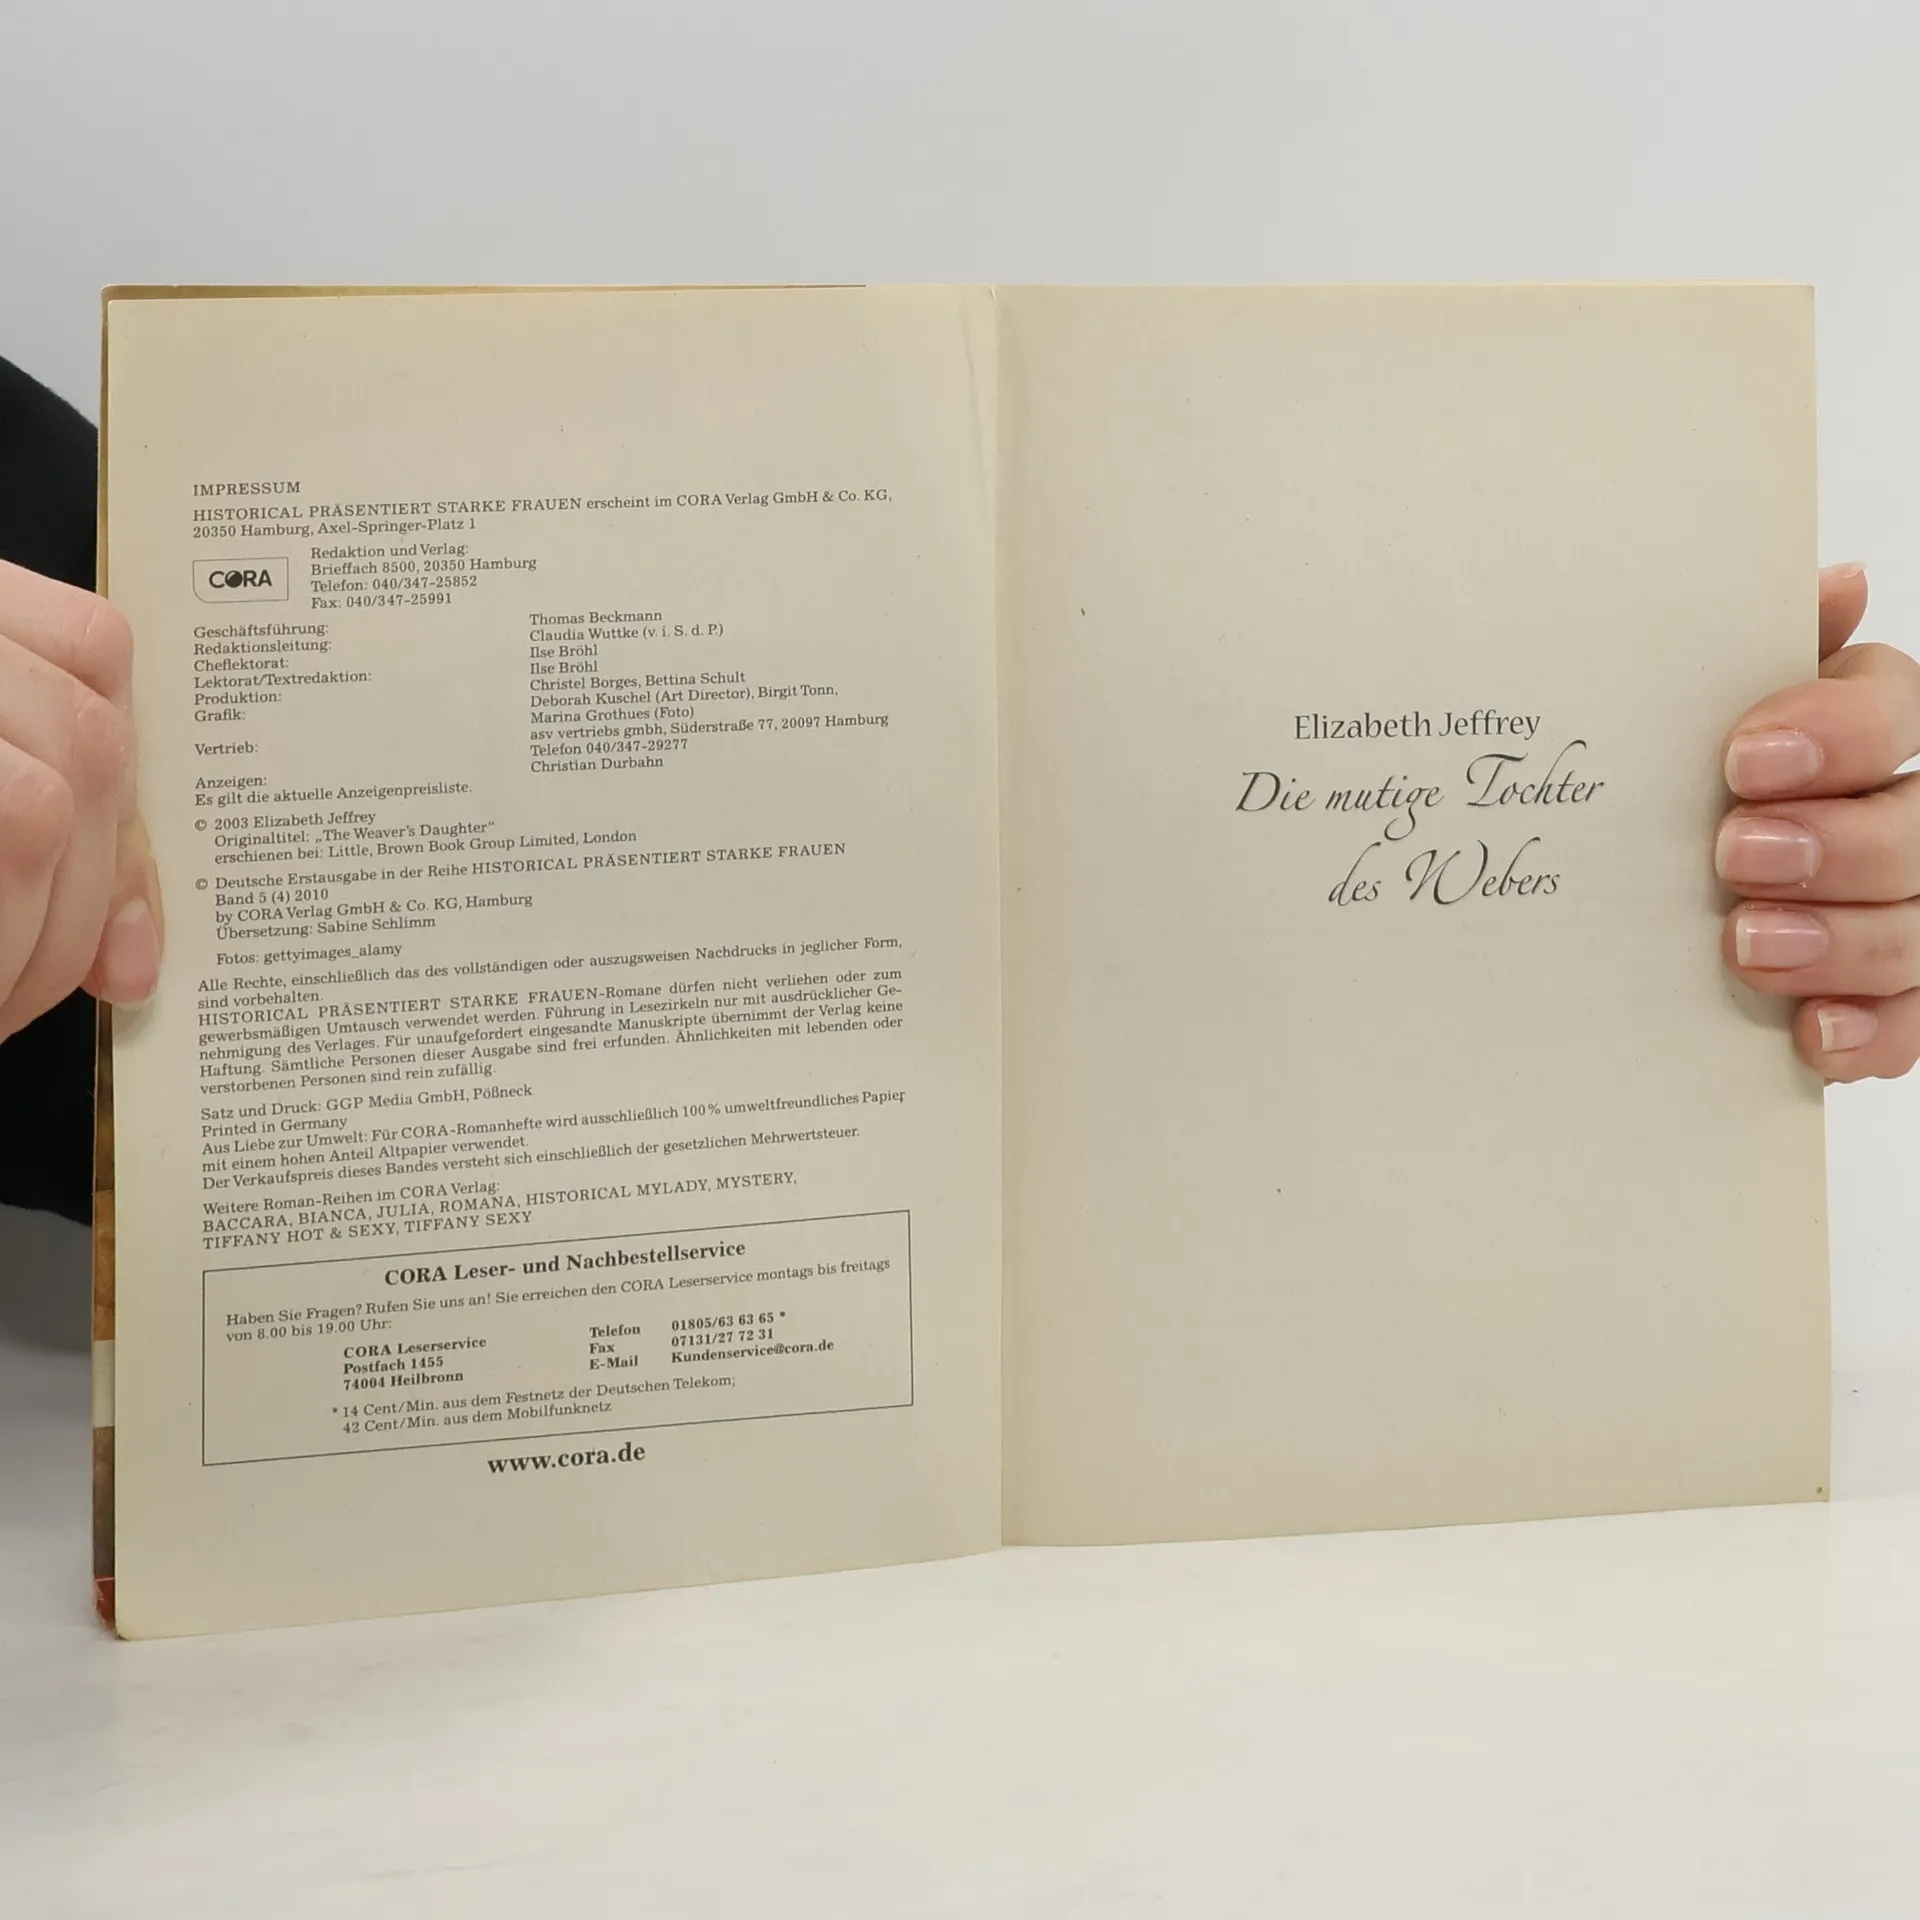 IMPRESSUM
HISTORICAL PRÄSENTIERT STARKE FRAUEN erscheint im CORA Verlag GmbH & Co. KG,
20350 Hamburg, Axel-Springer-Platz 1
CORA
Redaktion und Verlag:
Brieffach 8500, 20350 Hamburg
Telefon: 040/347-25852
Fax: 040/347-25991
Geschäftsführung:
Redaktionsleitung:
Cheflektorat:
Lektorat/Textredaktion:
Produktion:
Grafik:
Vertrieb:
Anzeigen:
Thomas Beckmann
Claudia Wuttke (v. i. S. d. P.)
Ilse Bröhl
Ilse Bröhl
Christel Borges, Bettina Schult
Deborah Kuschel (Art Director), Birgit Tonn,
Marina Grothues (Foto)
asv vertriebs gmbh, Süderstraße 77, 20097 Hamburg
Telefon 040/347-29277
Christian Durbahn
Es gilt die aktuelle Anzeigenpreisliste.
© 2003 Elizabeth Jeffrey
Originaltitel: „The Weaver's Daughter“
erschienen bei: Little, Brown Book Group Limited, London
© Deutsche Erstausgabe in der Reihe HISTORICAL PRÄSENTIERT STARKE FRAUEN
Band 5 (4) 2010
by CORA Verlag GmbH & Co. KG, Hamburg
Übersetzung: Sabine Schlimm
Fotos: gettyimages_alamy
Alle Rechte, einschließlich das des vollständigen oder auszugsweisen Nachdrucks in jeglicher Form,
sind vorbehalten.
HISTORICAL PRÄSENTIERT STARKE FRAUEN-Romane dürfen nicht verliehen oder zum
gewerbsmäßigen Umtausch verwendet werden. Führung in Lesezirkeln nur mit ausdrücklicher Ge-
nehmigung des Verlages. Für unaufgefordert eingesandte Manuskripte übernimmt der Verlag keine
Haftung. Sämtliche Personen dieser Ausgabe sind frei erfunden. Ähnlichkeiten mit lebenden oder
verstorbenen Personen sind rein zufällig.
Satz und Druck: GGP Media GmbH, Pößneck
Printed in Germany
Aus Liebe zur Umwelt: Für CORA-Romanhefte wird ausschließlich 100% umweltfreundliches Papier
mit einem hohen Anteil Altpapier verwendet.
Der Verkaufspreis dieses Bandes versteht sich einschließlich der gesetzlichen Mehrwertsteuer.
Weitere Roman-Reihen im CORA Verlag:
BACCARA, BIANCA, JULIA, ROMANA, HISTORICAL MYLADY, MYSTERY,
TIFFANY HOT & SEXY, TIFFANY SEXY
CORA Leser- und Nachbestellservice
Haben Sie Fragen? Rufen Sie uns an! Sie erreichen den CORA Leserservice montags bis freitags
von 8.00 bis 19.00 Uhr:
CORA Leserservice
Postfach 1455
74004 Heilbronn
Telefon 01805/63 63 65 *
Fax 07131/27 72 31
E-Mail Kundenservice@cora.de
* 14 Cent/Min. aus dem Festnetz der Deutschen Telekom;
42 Cent/Min. aus dem Mobilfunknetz
www.cora.de
Elizabeth Jeffrey
Die mutige Tochter
des Webers